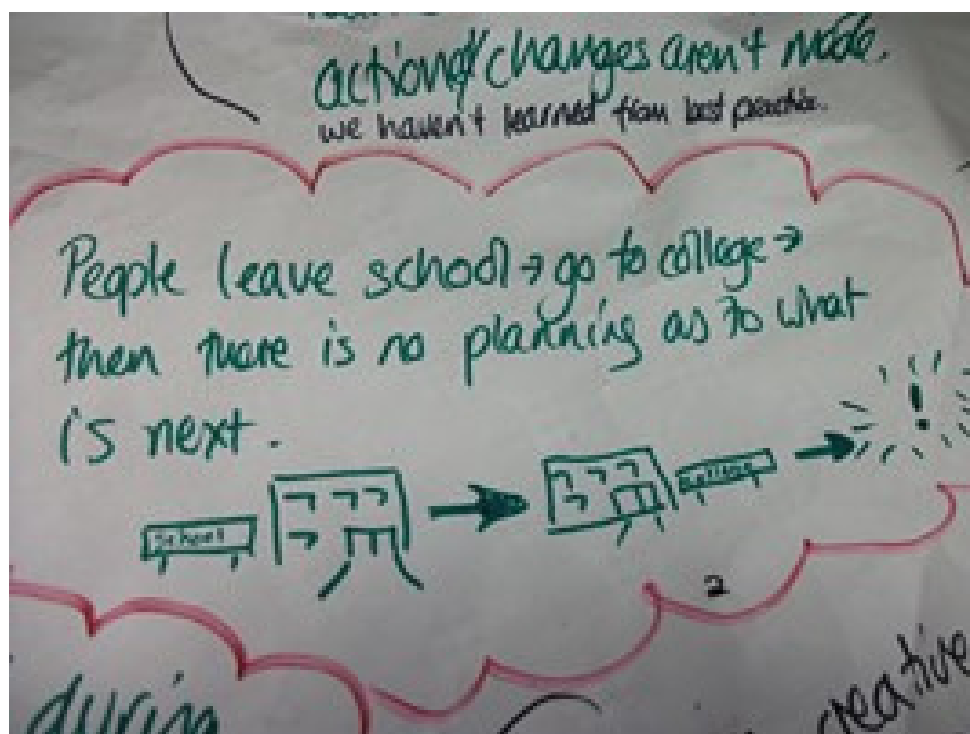 action & changes aren't made.
we haven't learned from best practice.
People leave school → go to college →
then there is no planning as to what
is next.
School
College
!
2
during
creative